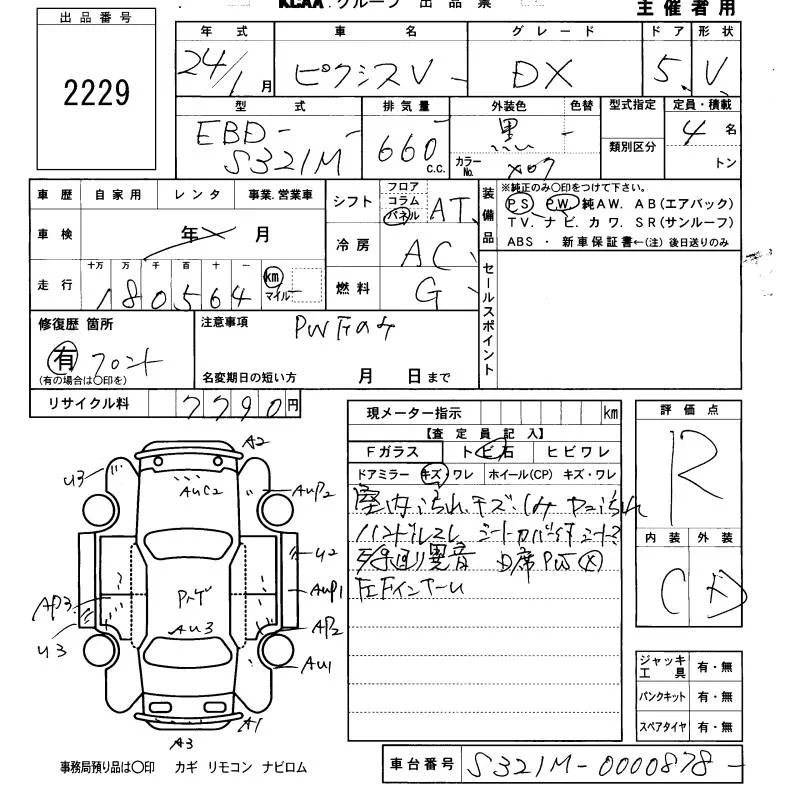 KCAA グループ 出品票
主催者用
出品番号
2229
年式 車名 グレード ドア 形状
24/1月 ピクシスV DX 5 V
型式 排気量 外装色 色替 型式指定 定員・積載
EBD- S321M 660 C.C. 黒 - 4名
カラーNo. X07 類別区分 トン
車歴 自家用 レンタ 事業.営業車
シフト フロア コラム パネル AT
装備品 ※純正のみ○印をつけて下さい。
PS PW 純AW. AB(エアバック)
TV. ナビ. カワ. SR(サンルーフ)
ABS ・ 新車保証書←(注) 後日送りのみ
車検 年 月
冷房 AC
走行 十万 万 千 百 十 一
180564 km マイル
燃料 G
セールスポイント
修復歴 箇所
有 フロント
(有の場合は○印を)
注意事項 PWFのみ
名変期日の短い方 月 日まで
リサイクル料 7790円
現メーター指示 km
【査定員記入】
Fガラス トビ石 ヒビワレ
ドアミラー キズ・ワレ ホイール(CP) キズ・ワレ
室内汚れキズ・しみ
ハンドルスレ シートカバー付
異音 D席PW
左Fインナー
評価点
R
内装 外装
C D
ジャッキ工具 有・無
パンクキット 有・無
スペアタイヤ 有・無
A2
U3
AUC2
AUP2
U2
AP3
AUP1
AU3
AP2
U3
AU1
A1
A3
事務局預り品は○印 カギ リモコン ナビロム
車台番号 S321M-0000878-